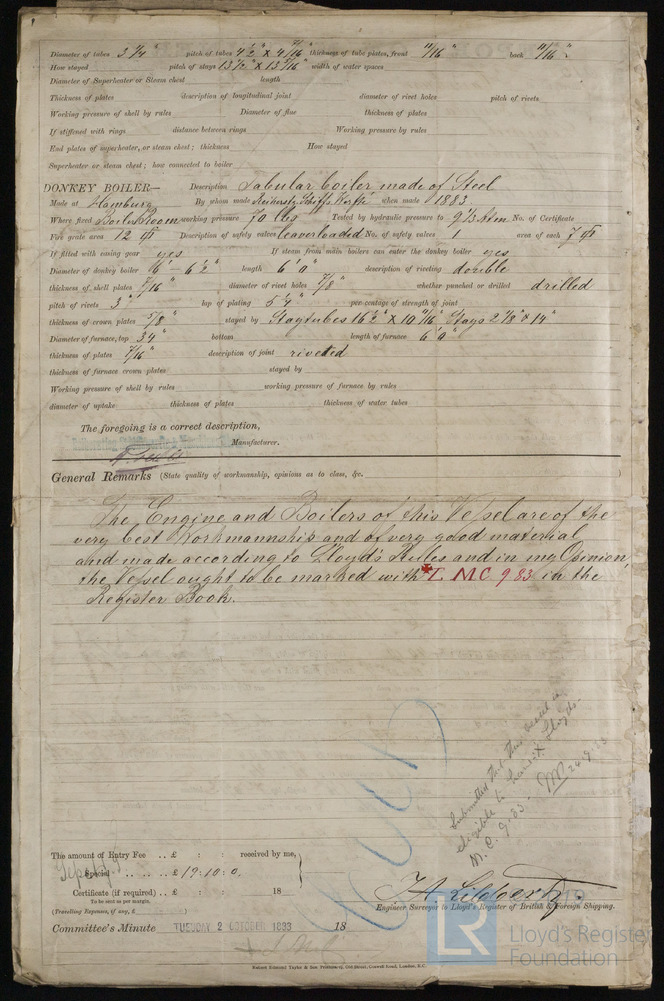 Diameter of tubes 3 3/4" pitch of tubes 4 1/2" x 4 7/16" thickness of tube plates, front 11/16" back 11/16"
How stayed pitch of stays 13 1/2" x 13 3/16" width of water spaces
Diameter of Superheater or Steam chest length
Thickness of plates description of longitudinal joint diameter of rivet holes pitch of rivets
Working pressure of shell by rules Diameter of flue thickness of plates
If stiffened with rings distance between rings Working pressure by rules
End plates of superheater, or steam chest; thickness How stayed
Superheater or steam chest; how connected to boiler
DONKEY BOILER— Description Tabular boiler made of Steel
Made at Hamburg By whom made Reiherstg Schiffs Werfte when made 1883
Where fixed Boiler Room working pressure 70 lbs Tested by hydraulic pressure to 9 1/3 Atm No. of Certificate
Fire grate area 12 Description of safety valves leaverloaded No. of safety valves 1 area of each 7
If fitted with easing gear yes If steam from main boilers can enter the donkey boiler yes
Diameter of donkey boiler 6'-6 1/2" length 6' 0" description of riveting double
thickness of shell plates 7/16" diameter of rivet holes 7/8" whether punched or drilled drilled
pitch of rivets 3" lap of plating 5 1/4" per centage of strength of joint
thickness of crown plates 5/8" stayed by Staytubes 16 1/2" x 10 11/16" Stays 2 1/8" x 14"
Diameter of furnace, top 34" bottom length of furnace 6' 0"
thickness of plates 7/16" description of joint riveted
thickness of furnace crown plates stayed by
Working pressure of shell by rules working pressure of furnace by rules
diameter of uptake thickness of plates thickness of water tubes
The foregoing is a correct description,
Manufacturer.
General Remarks (State quality of workmanship, opinions as to class, &c.
The Engine and Boilers of this Vessel are of the
very best Workmannship and of very good material
and made according to Lloyd's Rules and in my Opinion,
the Vessel ought to be marked with L.M.C. 9.83 in the
Register Book.
Submitted that this vessel is
eligible to have Lloyds
M.C. 9.83. 24.9.83
The amount of Entry Fee .. £ : : received by me,
Special .. £ 19 : 10 : 0.
Certificate (if required) .. £ : : 18
To be sent as per margin.
(Travelling Expenses, if any, £ )
Engineer Surveyor to Lloyd's Register of British & Foreign Shipping.
Committee's Minute TUESDAY 2 OCTOBER 1883 18
LR Lloyd's Register
Foundation